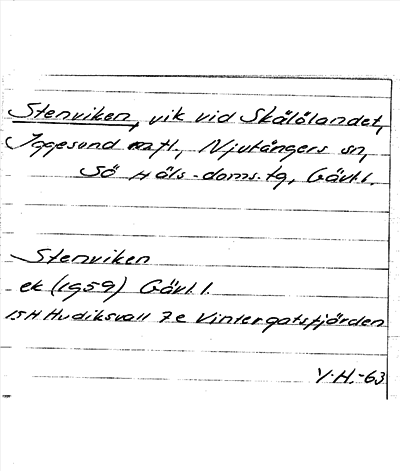 Stenviken, vik vid Skålölandet,
Iggesund mfl., Njutångers sn,
Sö Häls. doms. tg, Gävl. l.
Stenviken
ek (1959) Gävl. l.
15H Hudiksvall 7e Vintergatsfjärden
V.H.-63